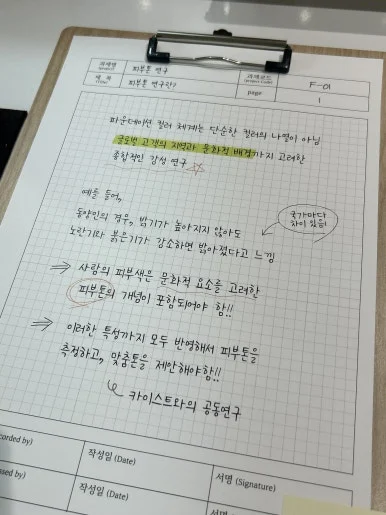 과제명 (project) 피부톤 연구 과제코드 (project Code) F-01
제 목 (Title) 피부톤 연구란? page 1
파운데이션 컬러 체계는 단순한 컬러의 나열이 아님
글로벌 고객의 지역과 문화적 배경까지 고려한
종합적인 감성 연구
예를 들어,
동양인의 경우, 밝기가 높아지지 않아도
노란기와 붉은기가 감소하면 밝아졌다고 느낌
국가마다
차이 있음!
⇒ 사람의 피부색은 문화적 요소를 고려한
피부톤의 개념이 포함되어야 함!!
⇒ 이러한 특성까지 모두 반영해서 피부톤을
측정하고, 맞춤톤을 제안해야함!!
카이스트와의 공동연구
corded by) 작성일 (Date) 서명 (Signature)
ssed by) 작성일 (Date) 서명 (Signature)